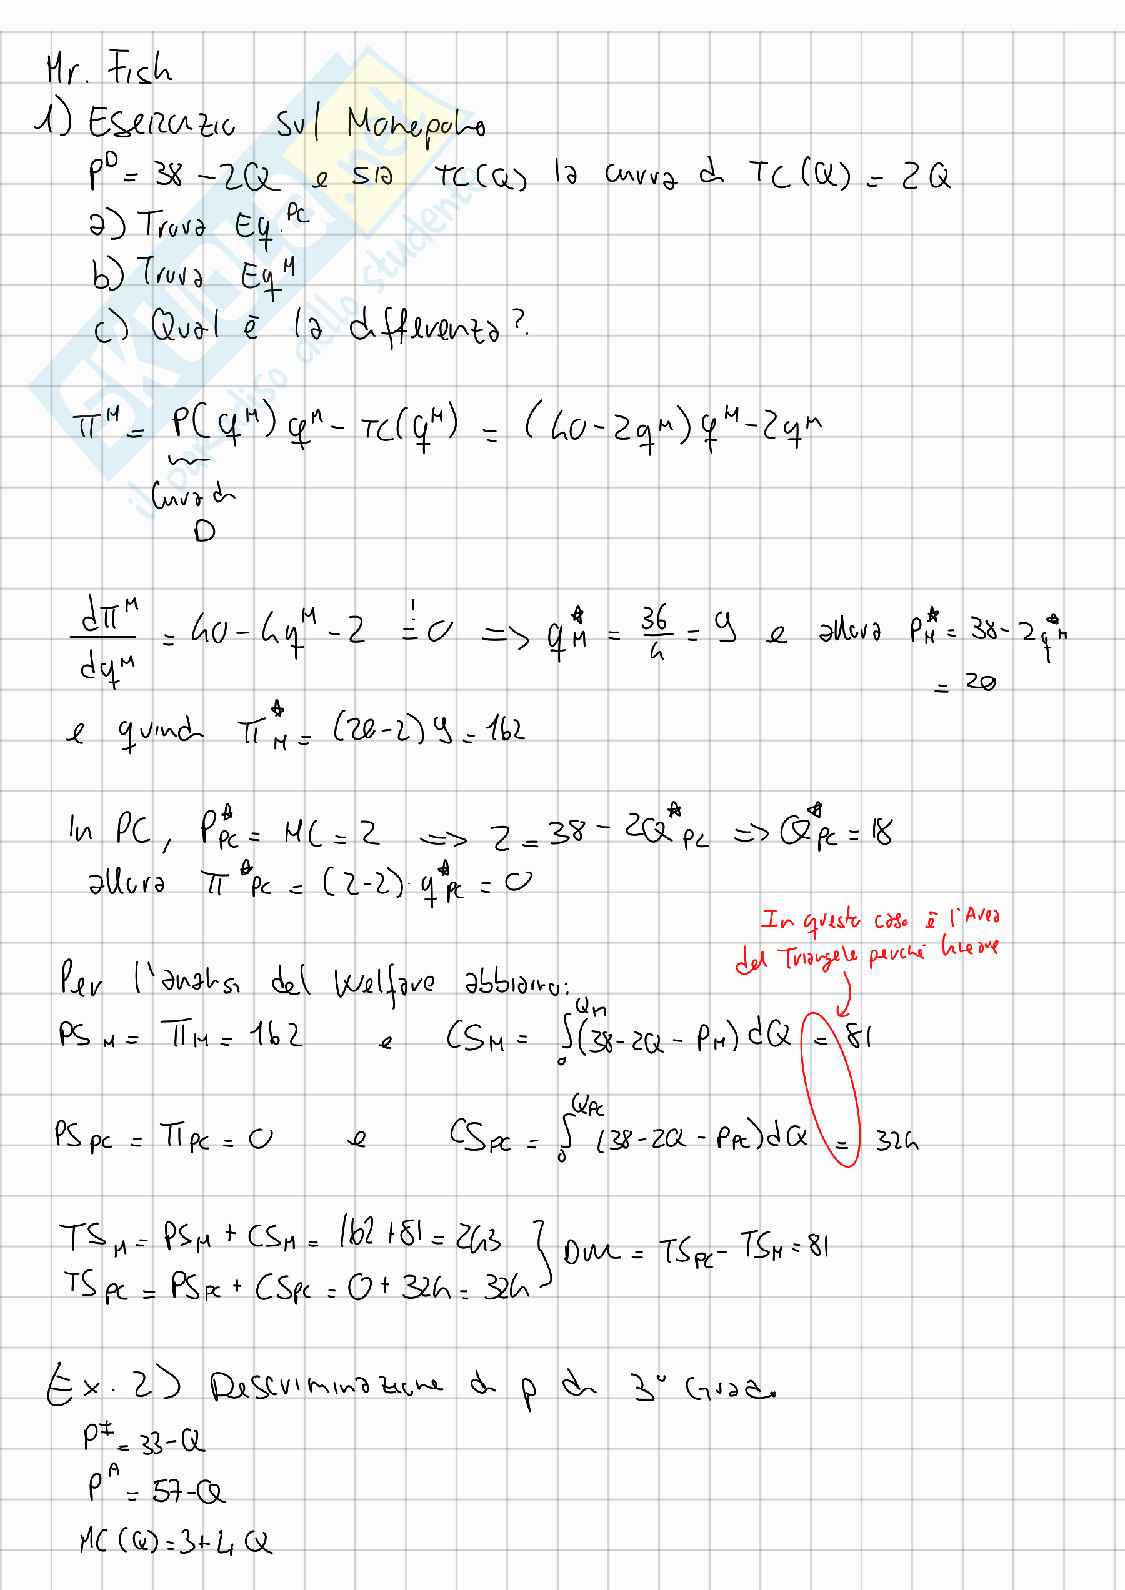 Mr. Fish
1) Esercizio sul Monopolio
P^D = 38 - 2Q e sia TC(Q) la curva di TC(Q) = 2Q
a) Trova Eq.^PC
b) Trova Eq^M
c) Qual è la differenza?
π^M = P(q^M) q^M - TC(q^M) = (40 - 2q^M) q^M - 2q^M
Curva di
D
dπ^M/dq^M = 40 - 4q^M - 2 = 0 => q*_M = 36/4 = 9 e allora P*_M = 38 - 2q*_M
= 20
e quindi π*_M = (20-2) 9 = 162
In PC, P*_PC = MC = 2 => 2 = 38 - 2Q*_PC => Q*_PC = 18
allora π*_PC = (2-2) · q*_PC = 0
In questo caso è l'Area
del Triangolo perché lineare
Per l'analisi del Welfare abbiamo:
PS_M = π_M = 162 e CS_M = ∫_0^Q_M (38 - 2Q - P_M) dQ = 81
PS_PC = π_PC = 0 e CS_PC = ∫_0^Q_PC (38 - 2Q - P_PC) dQ = 324
TS_M = PS_M + CS_M = 162 + 81 = 243
TS_PC = PS_PC + CS_PC = 0 + 324 = 324 } DWL = TS_PC - TS_M = 81
Ex. 2) Descriminazione di p di 3° Grado
P^I = 33 - Q
P^A = 57 - Q
MC(Q) = 3 + 4Q
skuola.net
il paradiso dello studente